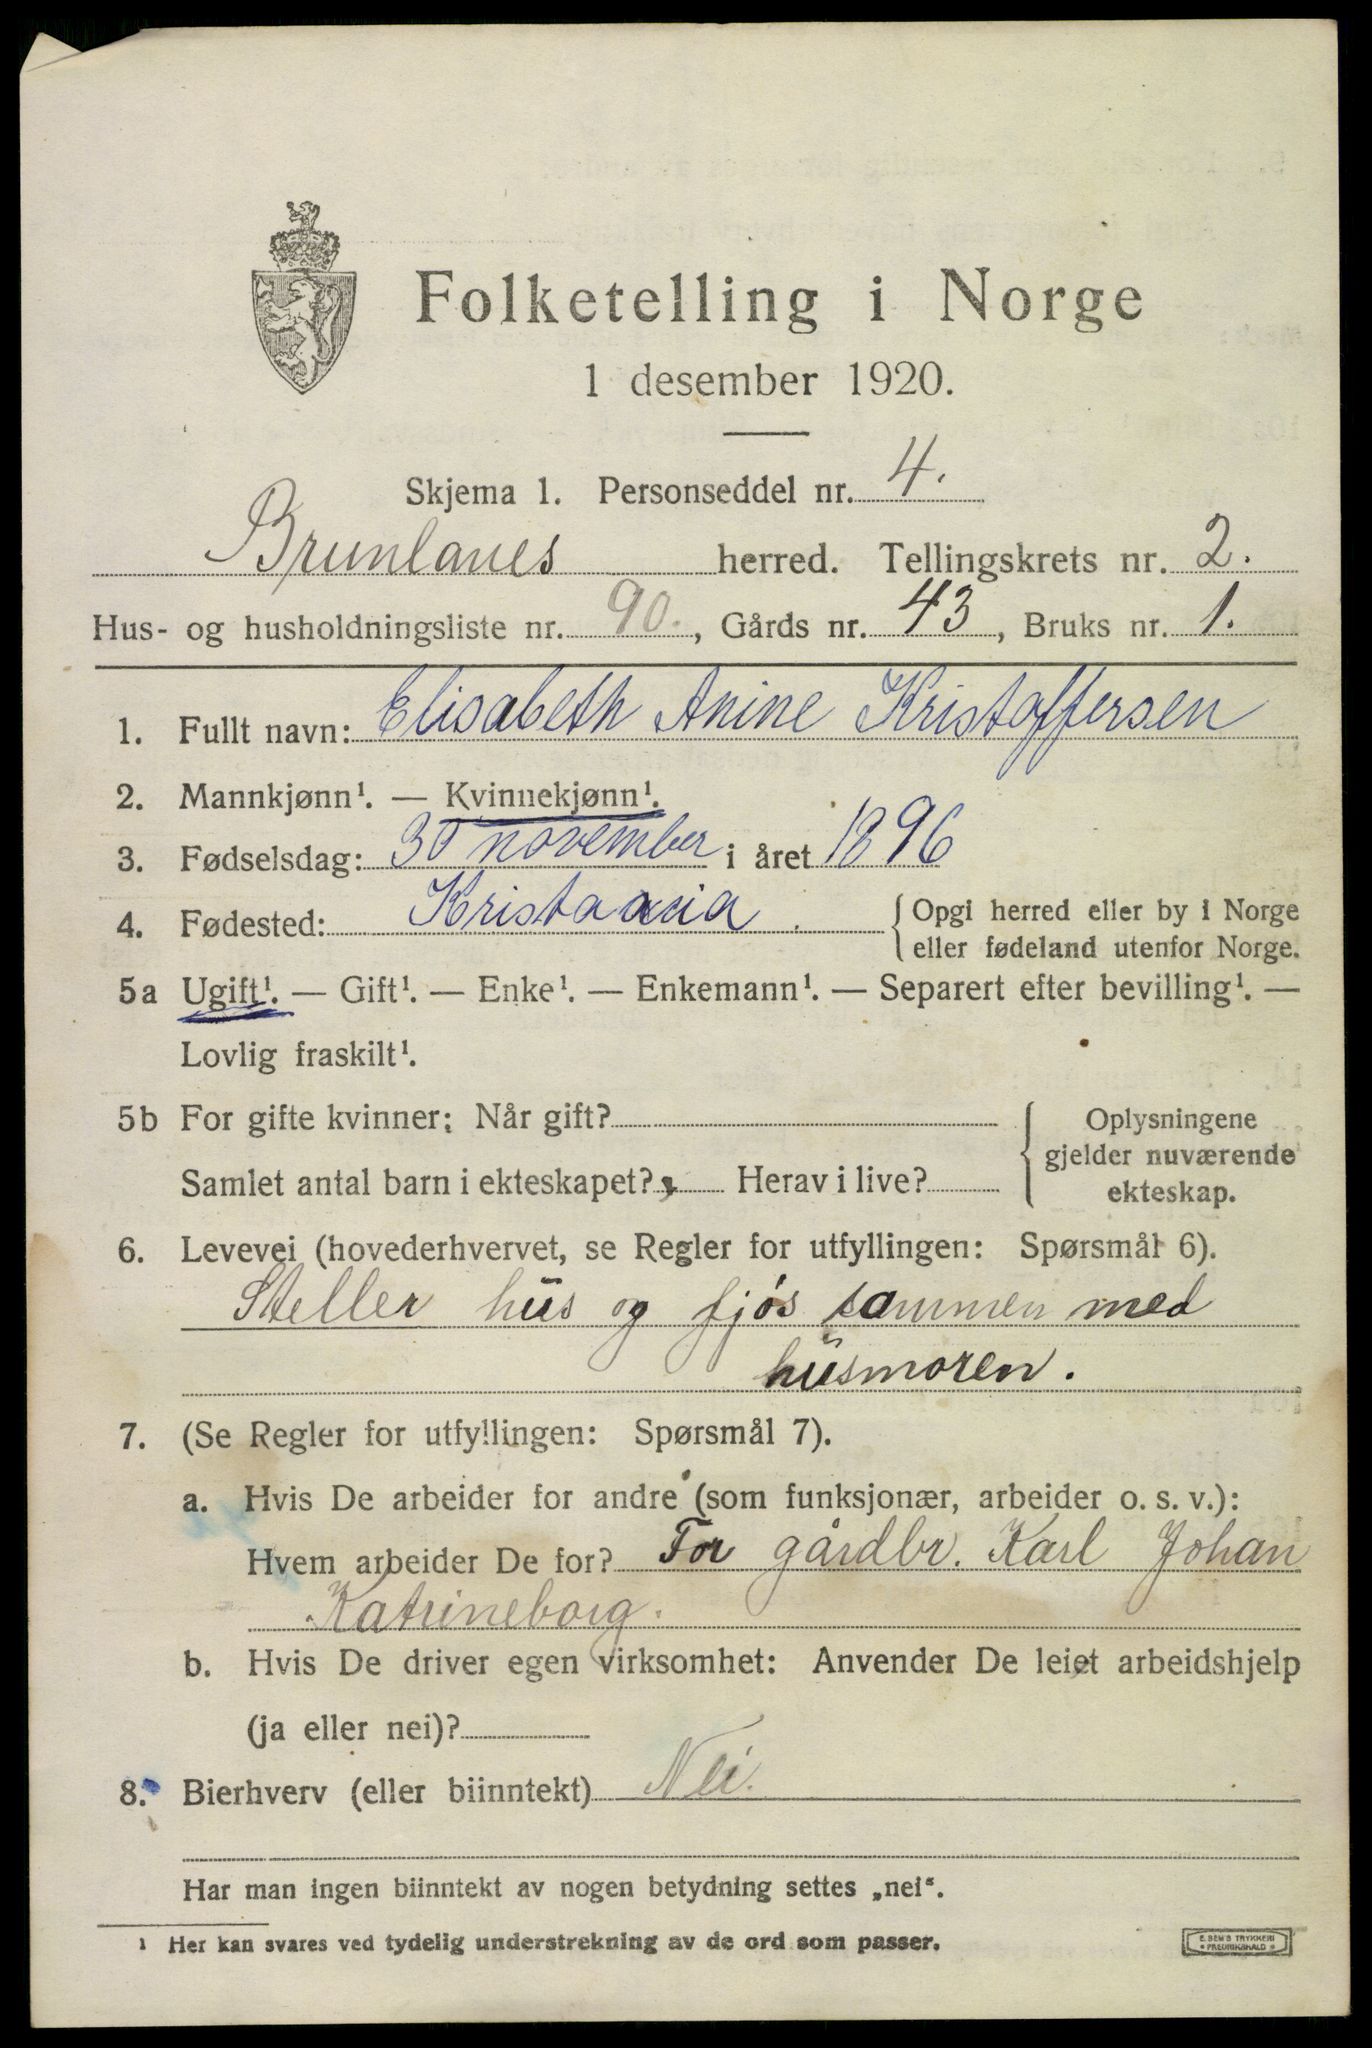 Folketelling i Norge
1 desember 1920.
Skjema 1. Personseddel nr. 4.
Brunlanes herred. Tellingskrets nr. 2.
Hus- og husholdningsliste nr. 90., Gårds nr. 43, Bruks nr. 1.
1. Fullt navn: Elisabeth Anine Kristoffersen
2. Mannkjønn¹. — Kvinnekjønn¹.
3. Fødselsdag: 30 november i året 1896
4. Fødested: Kristania { Opgi herred eller by i Norge
eller fødeland utenfor Norge.
5a Ugift¹. — Gift¹. — Enke¹. — Enkemann¹. — Separert efter bevilling¹. —
Lovlig fraskilt¹.
5b For gifte kvinner: Når gift? { Oplysningene
gjelder nuværende
Samlet antal barn i ekteskapet? Herav i live? ekteskap.
6. Levevei (hovederhvervet, se Regler for utfyllingen: Spørsmål 6).
Steller hus og fjøs sammen med
husmoren.
7. (Se Regler for utfyllingen: Spørsmål 7).
a. Hvis De arbeider for andre (som funksjonær, arbeider o. s. v.):
Hvem arbeider De for? For gårdbr. Karl Johan
Katrineborg.
b. Hvis De driver egen virksomhet: Anvender De leiet arbeidshjelp
(ja eller nei)?
8. Bierhverv (eller biinntekt) Nei.
Har man ingen biinntekt av nogen betydning settes „nei“.
¹ Her kan svares ved tydelig understrekning av de ord som passer.
E. SEM'S TRYKKERI
* FREDRIKSHALD *